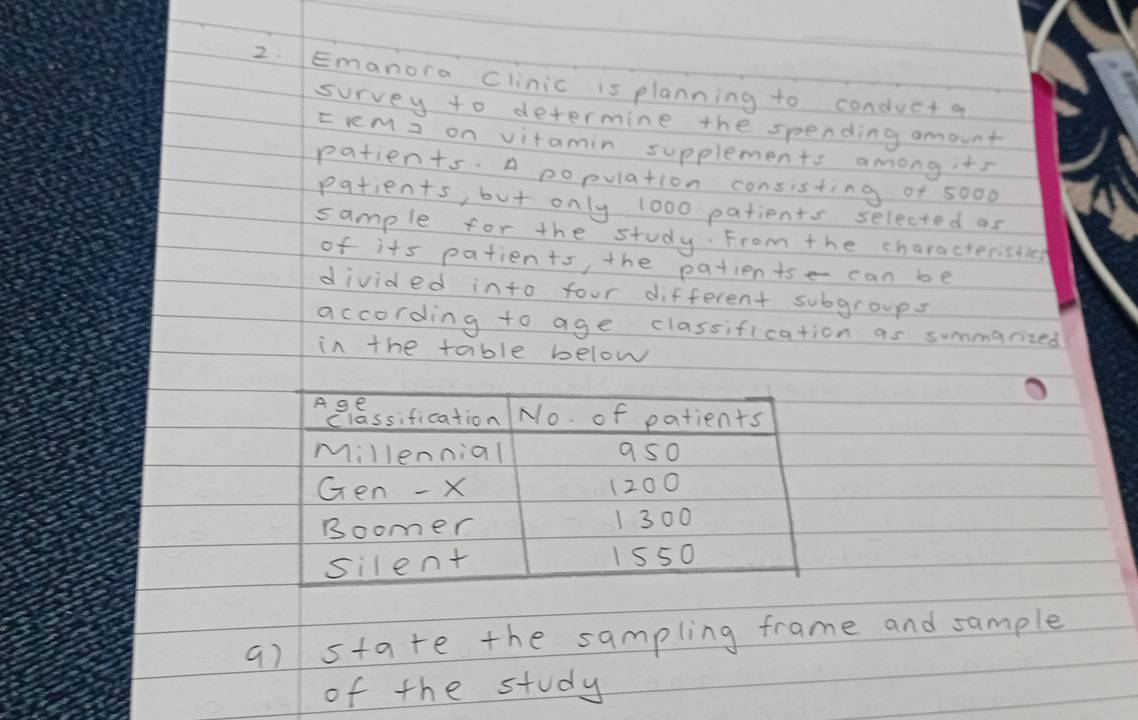 2. Emanora Clinic is planning to conduct a
survey to determine the spending amount
[RM] on vitamin supplements among its
patients. A population consisting of 5000
patients, but only 1000 patients selected as
sample for the study. From the characteristics
of its patients, the patients can be
divided into four different subgroups
according to age classification as summarized
in the table below
Age
Classification No. of patients
Millennial 950
Gen - X 1200
Boomer 1300
Silent 1550
a) state the sampling frame and sample
of the study